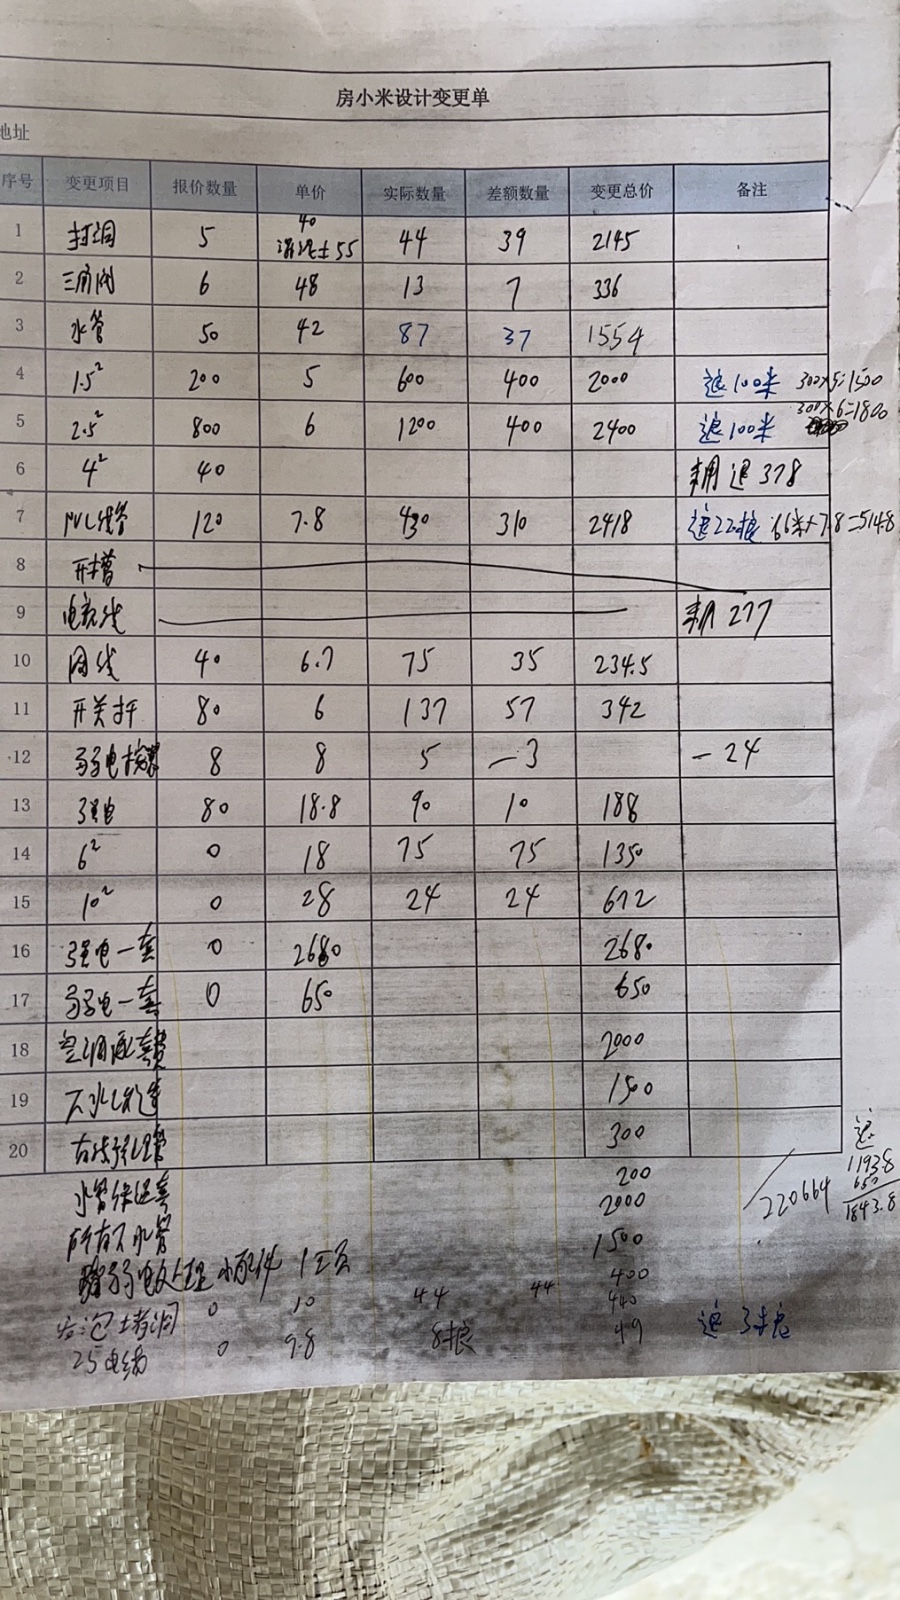 房小米设计变更单
地址
序号 变更项目 报价数量 单价 实际数量 差额数量 变更总价 备注
1 打洞 5 40 混泥土55 44 39 2145
2 三角阀 6 48 13 7 336
3 水管 50 42 87 37 1554
4 1.5² 200 5 600 400 2000 退100米 300×5=1500
5 2.5² 800 6 1200 400 2400 退100米 300×6=1800
6 4² 40 未用 退 378
7 PVC线管 120 7.8 430 310 2418 退22根 66米×7.8=514.8
8 开槽
9 电视线 未用 277
10 网线 40 6.7 75 35 234.5
11 开关打 80 6 137 57 342
12 弱电 8 8 5 -3 -24
13 强电 80 18.8 90 10 188
14 6² 0 18 75 75 1350
15 10² 0 28 24 24 672
16 强电一套 0 2680 2680
17 弱电一套 0 650 650
18 空调 2000
19 下水改造 1500
20 300
水管保温 200
所有下水管 2000
弱电处理 小配件 1500
1工具 400
堵洞 0 10 44 44 440
25电线 0 9.8 8根 49 退3根
退
1193.8
650
1843.8
220664